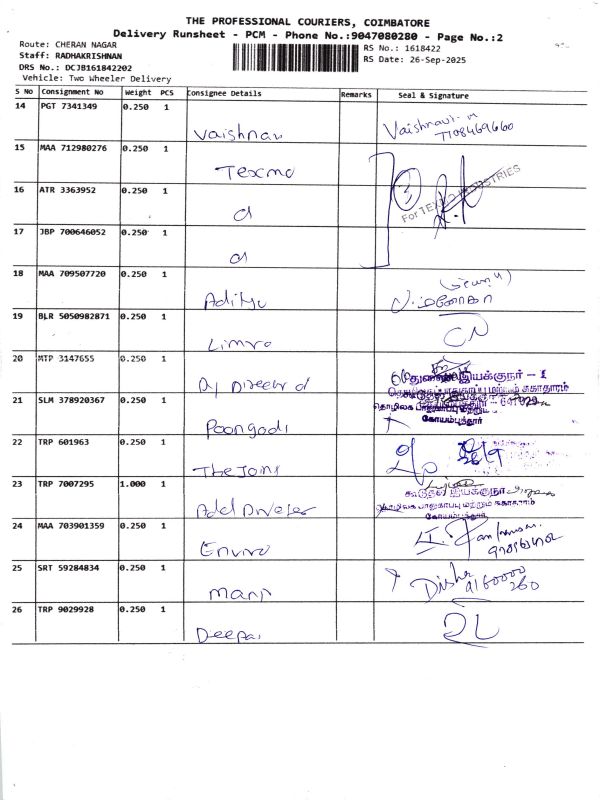 THE PROFESSIONAL COURIERS, COIMBATORE
Delivery Runsheet - PCM - Phone No.:9047080280 - Page No.:2
Route: CHERAN NAGAR
Staff: RADHAKRISHNAN
DRS No.: DCJB161842202
Vehicle: Two Wheeler Delivery
RS No.: 1618422
RS Date: 26-Sep-2025
S No Consignment No Weight PCS Consignee Details Remarks Seal & Signature
14 PGT 7341349 0.250 1
Vaishnav Vaishnavi. M
7708469660
15 MAA 712980276 0.250 1
Texmo
16 ATR 3363952 0.250 1
d
For TEXMO INDUSTRIES
17 JBP 700646052 0.250 1
d
18 MAA 709507720 0.250 1
Aditya
19 BLR 5050982871 0.250 1
Limra
20 MTP 3147655 0.250 1
இயக்குநர் - 1
21 SLM 378920367 0.250 1
Poongodi
கோயம்புத்தூர்
22 TRP 601963 0.250 1
The Joins
23 TRP 7007295 1.000 1
கூடுதல் இயக்குநர்
கோயம்புத்தூர்
24 MAA 703901359 0.250 1
Enviro
25 SRT 59284834 0.250 1
Mani Disha
9160000
260
26 TRP 9029928 0.250 1
Deepai